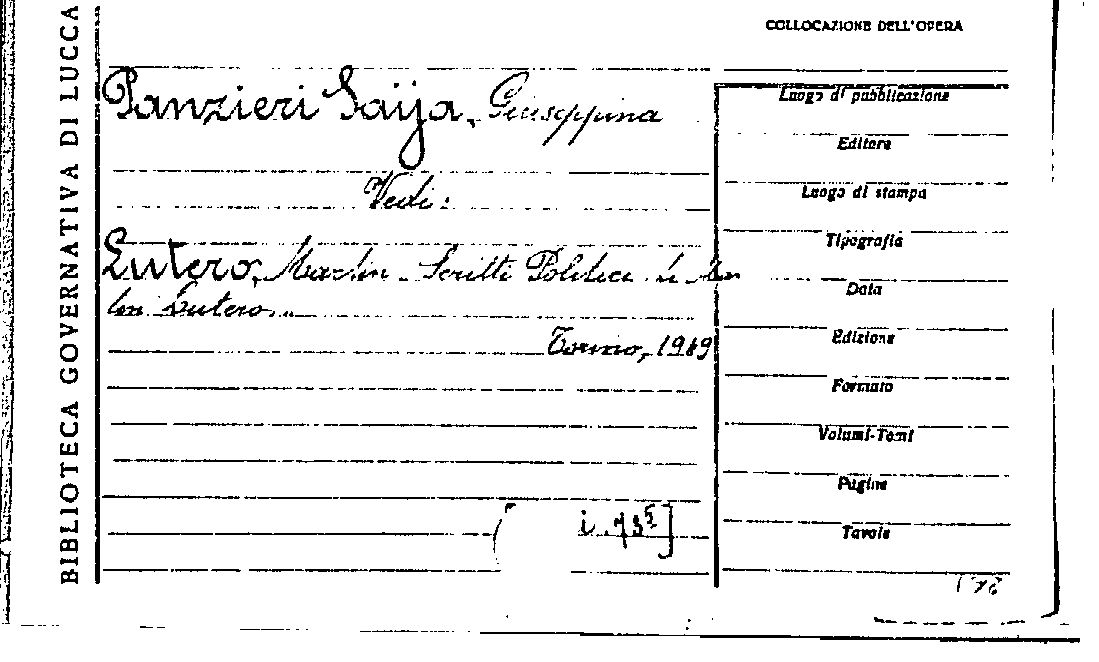 BIBLIOTECA GOVERNATIVA DI LUCCA
COLLOCAZIONE DELL'OPERA
Panzieri Saija, Giuseppina
Vedi:
Lutero, Martin - Scritti Politici di Mar
tin Lutero...
Torino, 1949
Luogo di pubblicazione
Editore
Luogo di stampa
Tipografia
Data
Edizione
Formato
Volumi-Tomi
Pagine
Tavole